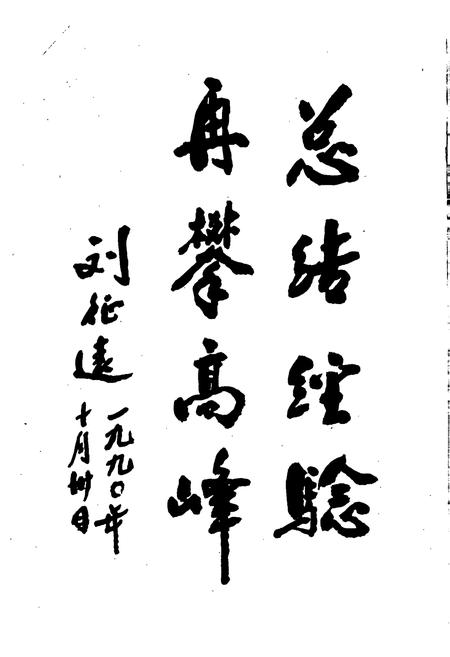 总结经验
再攀高峰
刘征远
一九九〇年
十月卅日